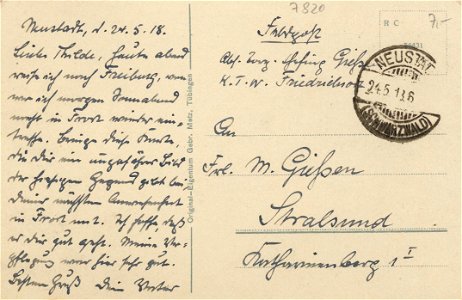 7820
7,-
R C
Neustadt, d. 24.5.18.
Liebe Thilde. Heute abend
reise ich nach Freiburg, von
wo ich morgen Sonnabend
nacht in Frort wieder ein-
treffe. Bringe Dir Karte,
die Dir ein ungefähres Bild
der hiesigen Gegend gibt bei
Deiner nächsten Anwesenheit
in Frort mit. Ich hoffe daß
es Dir gut geht. Meine Ver-
pflegung war hier sehr gut.
Besten Gruß Dein Vater
Original-Eigentum Gebr. Metz, Tübingen
Feldpost
Abs. Gießen
K.T.W. Friedrichsort
NEUSTADT
24.5.18.6
(SCHWARZWALD)
An
Frl. M. Gießen
Stralsund
Katharinenberg 1 I